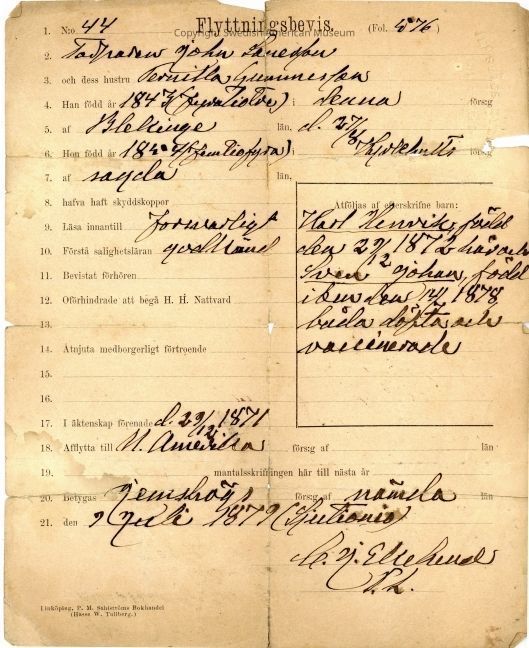 Flyttningsbevis.
Copyright Swedish American Museum
1. N:o 44 (Fol. 576)
2. John
3. och dess hustru Pernilla Gunnarsdr
4. Han född år 1843 (fyratiotre) i denna förs:g
5. af Blekinge län, d. 27/8
6. Hon född år förs:g
7. af län,
8. hafva haft skyddskoppor
9. Läsa innantill försvarligt
10. Förstå salighetsläran godkänd
11. Bevistat förhören
12. Oförhindrade att begå H. H. Nattvard
13.
14. Åtnjuta medborgerligt förtroende
15.
16.
Åtföljas af efterskrifne barn:
Karl Henrik, född
den 29/12 1872 häroch
Sven Johan, född
ibm den 1878
båda döpta och
vaccinerade
17. I äktenskap förenade d. 29/12 1871
18. Afflytta till N. Amerika förs:g af län
19. mantalsskrifningen här till nästa år
20. Betygas Jemshögs förs:g af nämda län
21. den 9 Juli 1879 (Sjuttionio)
Linköping, P. M. Sahlströms Bokhandel
(Hasse W. Tullberg.)